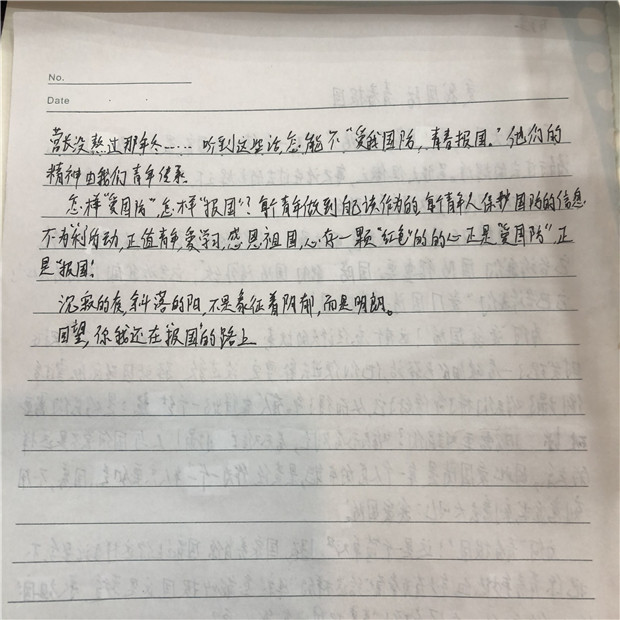 No.
Date
营长没熬过那年冬……听到这些话怎能不“爱我国防，青春报国。”他们的
精神由我们青年传承
怎样“爱国防”怎样“报国”？每个青年做到自己该作为的，每个青年人保护国防的信息
不为利所动，正值青年，爱学习，感恩祖国，心存一颗“红色”的的心正是“爱国防”，正
是“报国！
沉寂的夜，斜落的阳，不是象征着阴郁，而是明朗。
回望，你我还在“报国”的路上